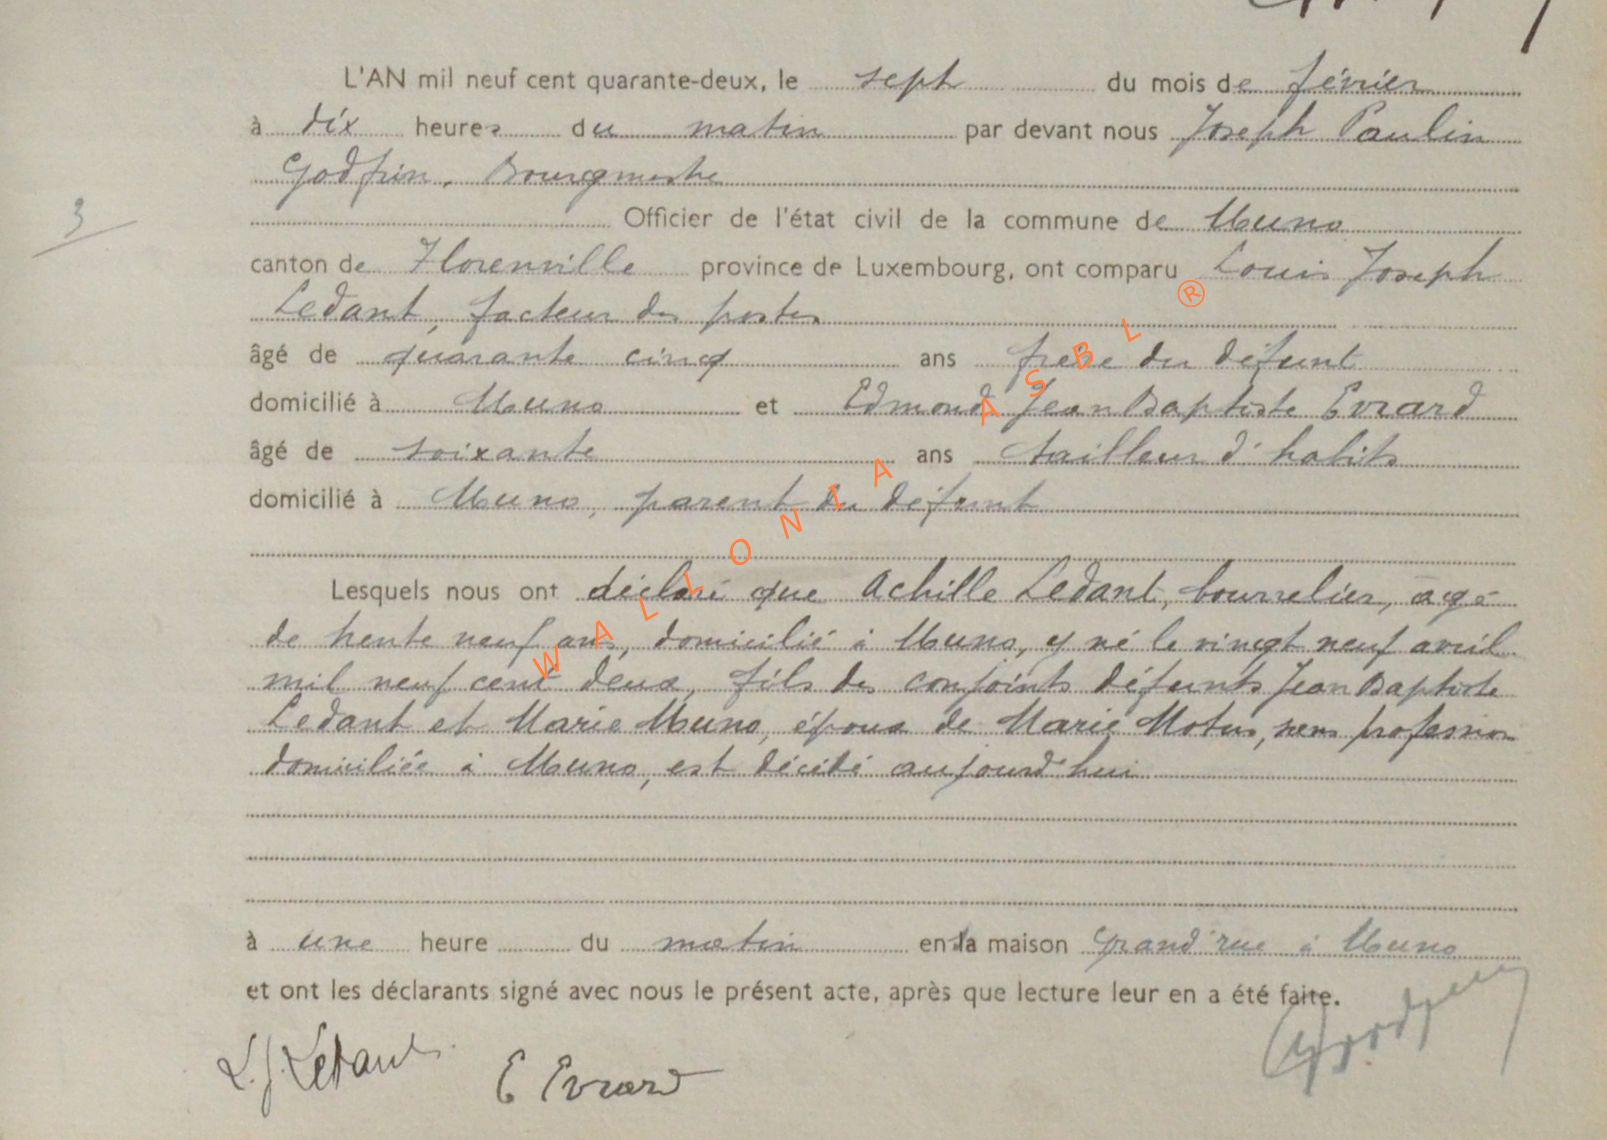 L'AN mil neuf cent quarante-deux, le sept du mois de février
à dix heures du matin par devant nous Joseph Paulin
Godfrin, Bourgmestre
3
Officier de l'état civil de la commune de Muno
canton de Florenville province de Luxembourg, ont comparu Louis Joseph
Ledant, facteur des postes
âgé de quarante cinq ans frère du défunt
domicilié à Muno et Edmond Jean Baptiste Evrard
âgé de soixante ans tailleur d'habits
domicilié à Muno, parent du défunt
Lesquels nous ont déclaré que Achille Ledant, bourrelier, âgé
de trente neuf ans, domicilié à Muno, y né le vingt neuf avril
mil neuf cent deux, fils des conjoints défunts Jean Baptiste
Ledant et Marie Muno, époux de Marie Motus, sans profession
domiciliée à Muno, est décédé aujourd'hui
à une heure du matin en la maison Grand'rue à Muno
et ont les déclarants signé avec nous le présent acte, après que lecture leur en a été faite.
L. J. Ledant
E Evrard
WALLONIA ASBL ®